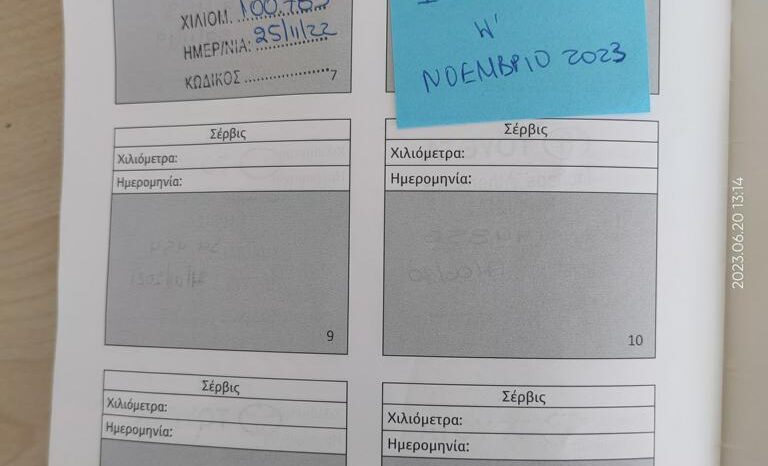 ΧΙΛΙΟΜ.
ΗΜΕΡ/ΝΙΑ: 25/11/22
ΚΩΔΙΚΟΣ
7
Η'
ΝΟΕΜΒΡΙΟ 2023
Σέρβις
Χιλιόμετρα:
Ημερομηνία:
9
Σέρβις
Χιλιόμετρα:
Ημερομηνία:
10
Σέρβις
Χιλιόμετρα:
Ημερομηνία:
Σέρβις
Χιλιόμετρα:
Ημερομηνία:
2023.06.20 13:14